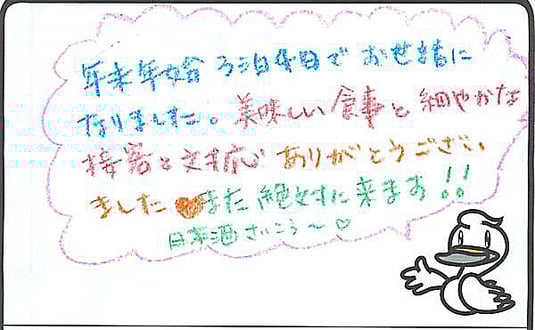 年末年始 3泊4日で お世話に
なりました。美味しい食事と細やかな
接客と対応 ありがとうござい
ました♥また絶対に来ます!!
日本酒さいこう〜♡